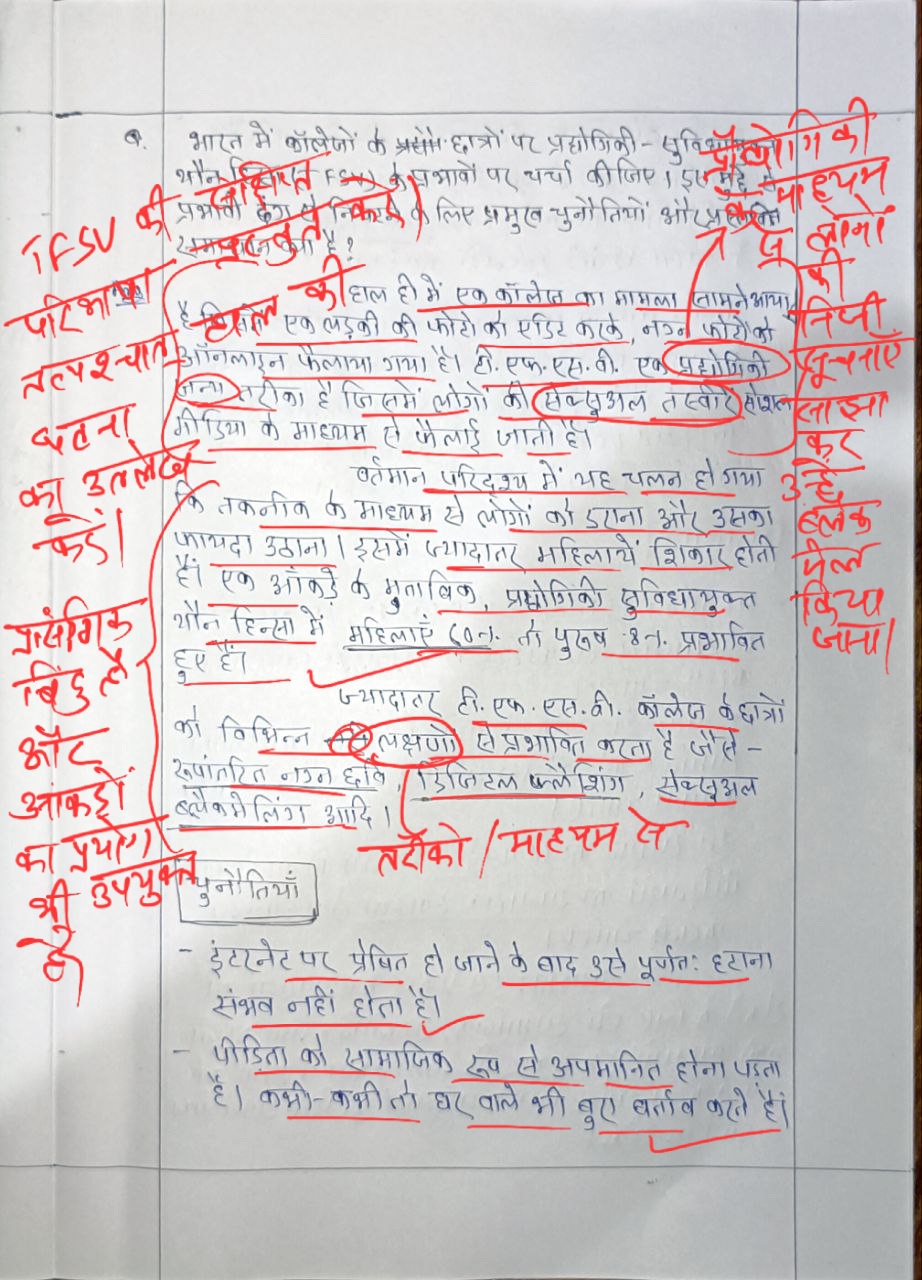 Q. भारत में कॉलेजों के छात्रों पर प्रद्योगिकी - सुविधा
यौन के प्रभावों पर चर्चा कीजिए। इस मुद्दे से
प्रभावी ढंग से निपटने के लिए प्रमुख चुनौतियाँ और
समाधान क्या है?
TFSV की संक्षिप्त
परिभाषा प्रस्तुत करें।
तत्पश्चात हाल की
घटना
का उल्लेख
करें।
प्रौद्योगिकी
के माध्यम
से लोगों
की
निजी
सूचनाएँ
साझा
कर
उन्हें
ब्लैक
मेल
किया
जाना।
हाल ही में एक कॉलेज का मामला सामने आया
है जिसमें एक लड़की की फोटो को एडिट करके, नग्न फोटो को
ऑनलाइन फैलाया गया है। टी.एफ.एस.वी. एक प्रद्योगिकी
जन्य तरीका है जिसमें लोगों की सेक्सुअल तस्वीरें सोशल
मीडिया के माध्यम से फैलाई जाती है।
वर्तमान परिदृश्य में यह चलन हो गया
कि तकनीक के माध्यम से लोगों को डराना और उसका
फायदा उठाना। इसमें ज्यादातर महिलायें शिकार होती
हैं। एक आँकड़े के मुताबिक, प्रद्योगिकी सुविधायुक्त
यौन हिन्सा में महिलाएँ 60% तो पुरुष प्रभावित
हुए हैं।
प्रासंगिक
बिंदु है
और
आकड़ों
का प्रयोग
भी उपयुक्त
है।
ज्यादातर टी.एफ.एस.वी. कॉलेज के छात्रों
को विभिन्न लक्षणों से प्रभावित करता है जैसे -
रूपांतरित नग्न छवि, डिजिटल फ्लैशिंग, सेक्सुअल
ब्लैकमेलिंग आदि।
तरीको / माध्यम से
चुनौतियाँ
- इंटरनेट पर प्रेषित हो जाने के बाद उसे पूर्णतः हटाना
संभव नहीं होता है।
- पीड़िता को सामाजिक रूप से अपमानित होना पड़ता
है। कभी-कभी तो घर वाले भी बुरा बर्ताव करते हैं।